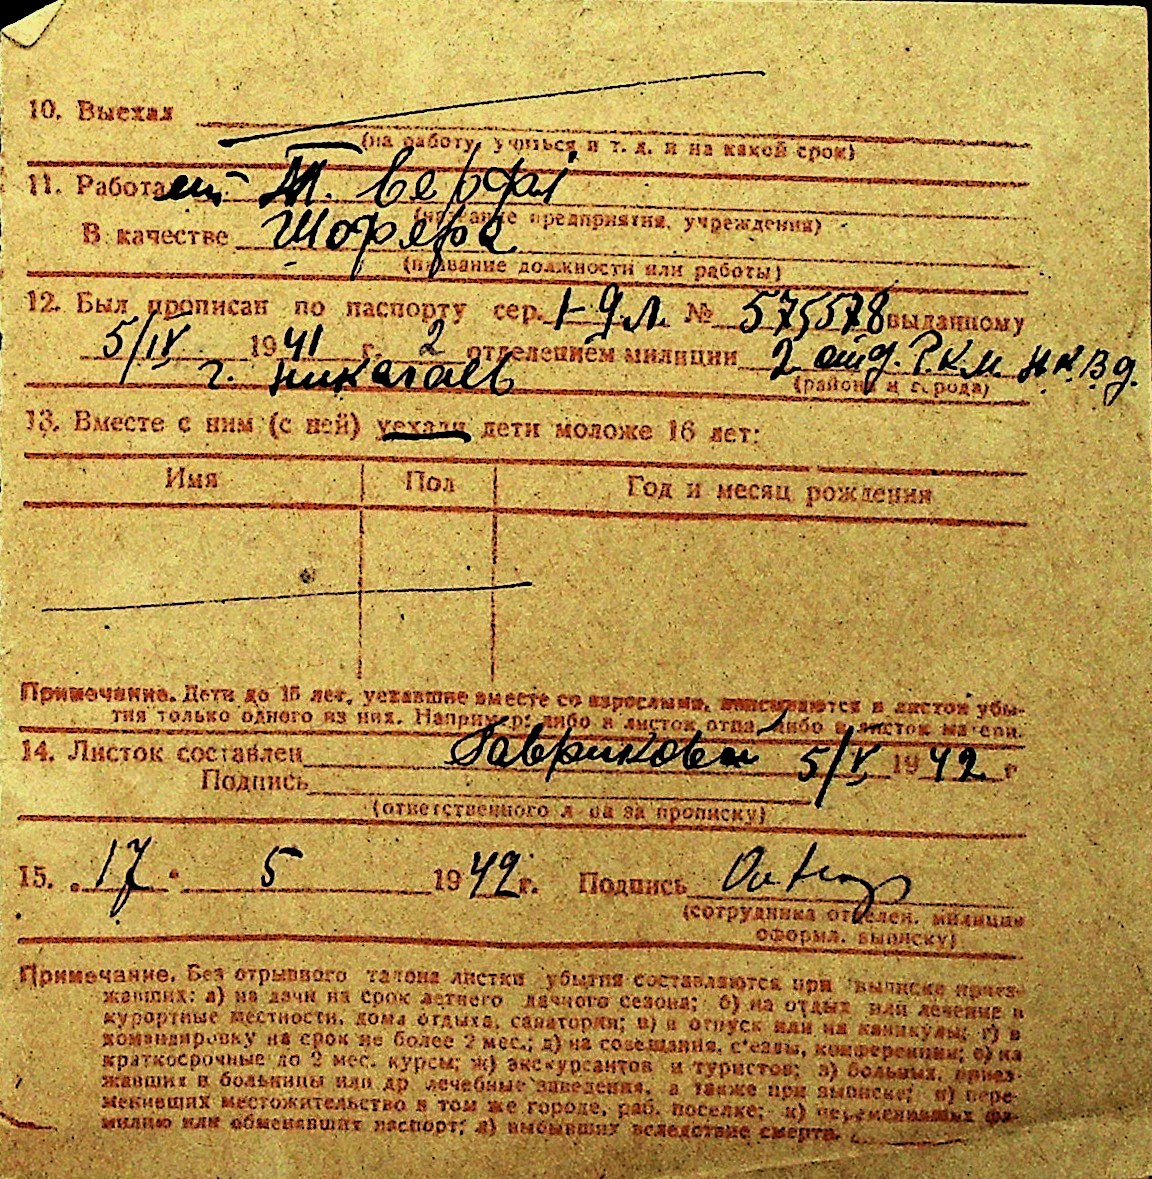 10. Выехал
(на работу, учиться и т. д. и на какой срок)
11. Работает М. верфі
(название предприятия, учреждения)
В качестве Шофера
(название должности или работы)
12. Был прописан по паспорту сер. № 575578 выданному
5/IV 1941 г. 2 отделением милиции 2 отд. Р.К.М. Н.К.В.Д.
г. Николаев (района и города)
13. Вместе с ним (с ней) уехали дети моложе 16 лет:
Имя Пол Год и месяц рождения
Примечание. Дети до 16 лет, уехавшие вместе со взрослыми, вписываются в листок убы-
тия только одного из них. Например: либо в листок отца, либо в листок матери.
14. Листок составлен Гавриковой 5/V 1942 г
Подпись
(ответственного л-ца за прописку)
15. 17 5 1942 г. Подпись
(сотрудника отделен. милиции
оформл. выписку)
Примечание. Без отрывного талона листки убытия составляются при выписке приез-
жавших: а) на дачи на срок летнего дачного сезона; б) на отдых или лечение в
курортные местности, дома отдыха, санатории; в) в отпуск или на каникулы; г) в
командировку на срок не более 2 мес.; д) на совещания, с'езды, конференции; е) на
краткосрочные до 2 мес. курсы; ж) экскурсантов и туристов; з) больных, приез-
жавших в больницы или др лечебные заведения, а также при выписке; и) пере-
менивших местожительство в том же городе, раб. поселке; к) переменивших фа-
милию или обменявших паспорт; л) выбывших вследствие смерти.